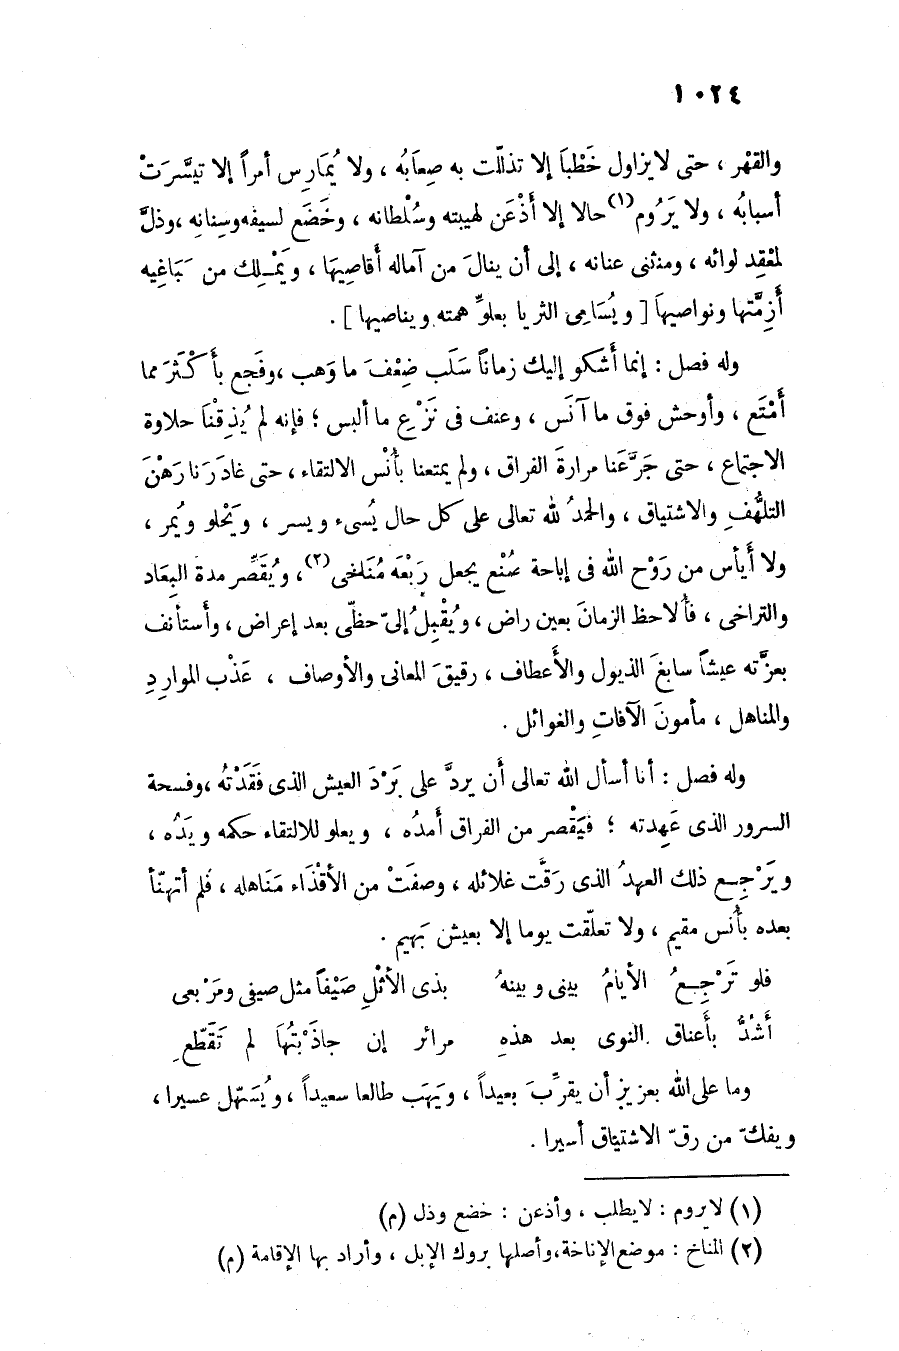 ١٠٢٤
والقهْر ، حتى لا يزاول خَطْباً إلا تذلّلت به صِعاَبُه ، ولا يُمَارِس أمراً إلا تيسَّرَتْ
أسبابُه ، ولا يَرُوم(١) حالا إلا أذْعَن لهيبته وسُلْطانه ، وخَضَع لسيفه وسِنانِه ، وذلَّ
لمعْقِد لوائه ، ومنثنى عنانه ، إلى أن ينالَ من آماله أقاصِيهَا ، ويَمْلِك من مَبَاغِيه
أَزِمَّتها ونواصيهاَ [ ويُسَامِى الثريا بعلوِّ همته ويناصيها ] .
وله فصل : إنما أشكو إليك زماناً سَلَب ضِعْفَ ما وَهب ، وفَجع بأكْثَرَ مما
أمْتَع ، وأوحش فوق ما آنَس ، وعنف فى نَزْعِ ما ألبس ؛ فإنه لم يُذِقْناَ حلاوة
الاجتماع ، حتى جَرَّعَنا مرارةَ الفراق ، ولم يمتعنا بأُنْس الالتقاء ، حتى غادَرَنا رَهْنَ
التلهُّفِ والاشتياق ، والحمدُ لله تعالى على كل حال يُسىء ويسر ، ويَحْلو ويُمر ،
ولا أيأس من رَوْح الله فى إباحة صُنْع يجعل رَبْعَه مُنَاخى(٢) ، ويُقَصِّر مدة البِعَاد
والتراخى ، فأُلاحظ الزمانَ بعين راض ، ويُقْبِلُ إلىّ حظّى بعد إعراض ، وأستأنف
بعزَّته عيشاً سابغَ الذيول والأعطاف ، رقيقَ المعانى والأوصاف ، عَذْب الموارِدِ
والمناهل ، مأمونَ الآفاتِ والغوائل .
وله فصل : أنا أسأل الله تعالى أن يردَّ على بَرْدَ العيش الذى فَقَدْتُه ، وفسحة
السرور الذى عَهِدته ؛ فيَقْصر من الفراق أمدُه ، ويعلو للالتقاء حكمه ويَدُه ،
ويَرْجِع ذلك العهدُ الذى رَقَّت غلائله ، وصفتْ من الأقْذَاء مَنَاهله ، فلم أتهنّأ
بعده بأُنس مقيم ، ولا تعلّقت يوما إلا بعيش بَهيم .
فلو تَرْجِعُ الأيامُ بينى وبينهُ بذى الأثْلِ صَيْفاً مثل صيفى ومَرْبعى
أَشُدُّ بأعناق النوى بعد هذهِ مرائر إن جاذَبْتُهَا لم تَقَطّعِ
وما على الله بعزيزٍ أن يقرِّبَ بعيداً ، ويَهَب طالعا سعيداً ، ويُسَهّل عسيرا ،
ويفكّ من رِقّ الاشتياق أسيرا .
(١) لا يروم : لا يطلب ، وأذعن : خضع وذل (م)
(٢) المناخ : موضع الإناخة، وأصلها بروك الإبل ، وأراد بها الإقامة (م)